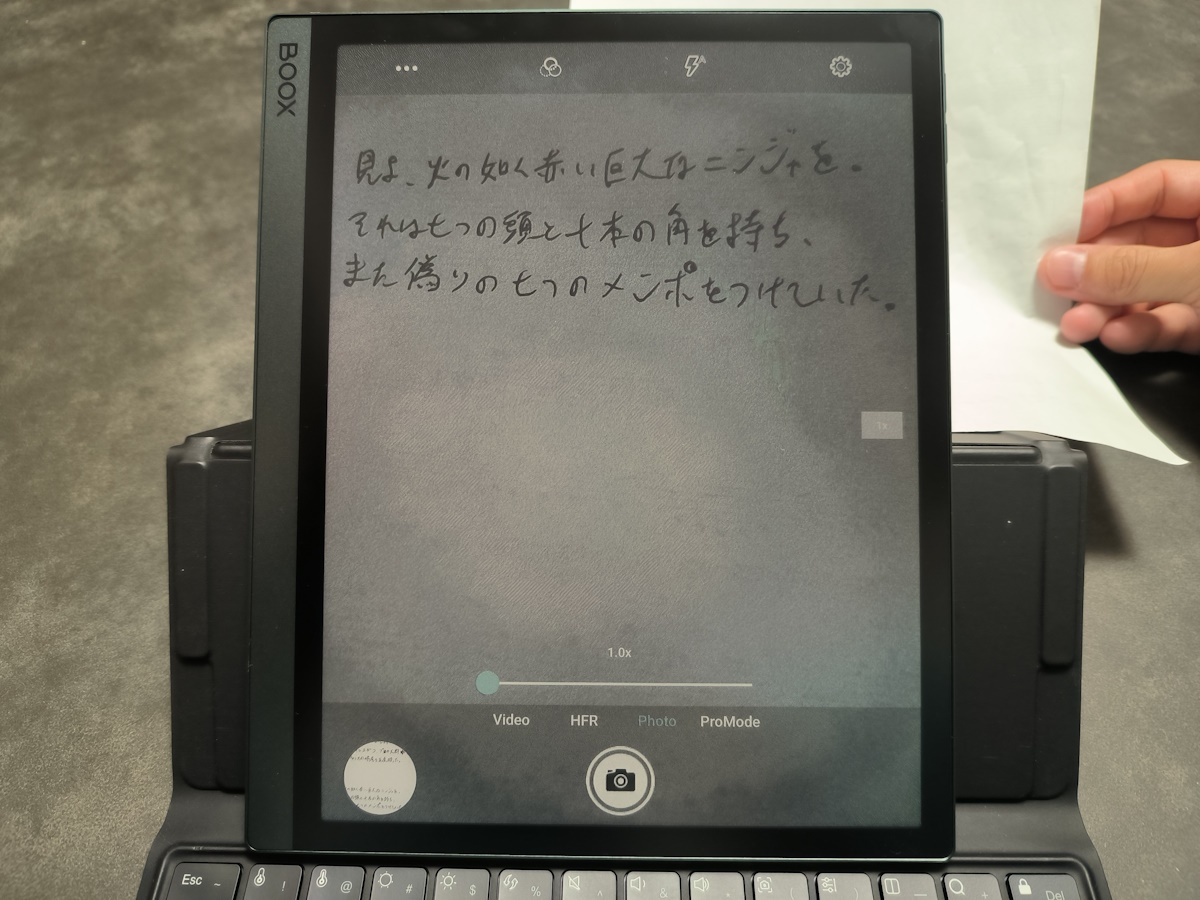 BOOX
見よ、火の如く赤い巨大なニンジャを。
それは七つの頭と十本の角を持ち、
また偽りの七つのメンポをつけていた。
1x
1.0x
Video HFR Photo ProMode
Esc ~ ! @ # $ % ^ & * ( ) — + Del